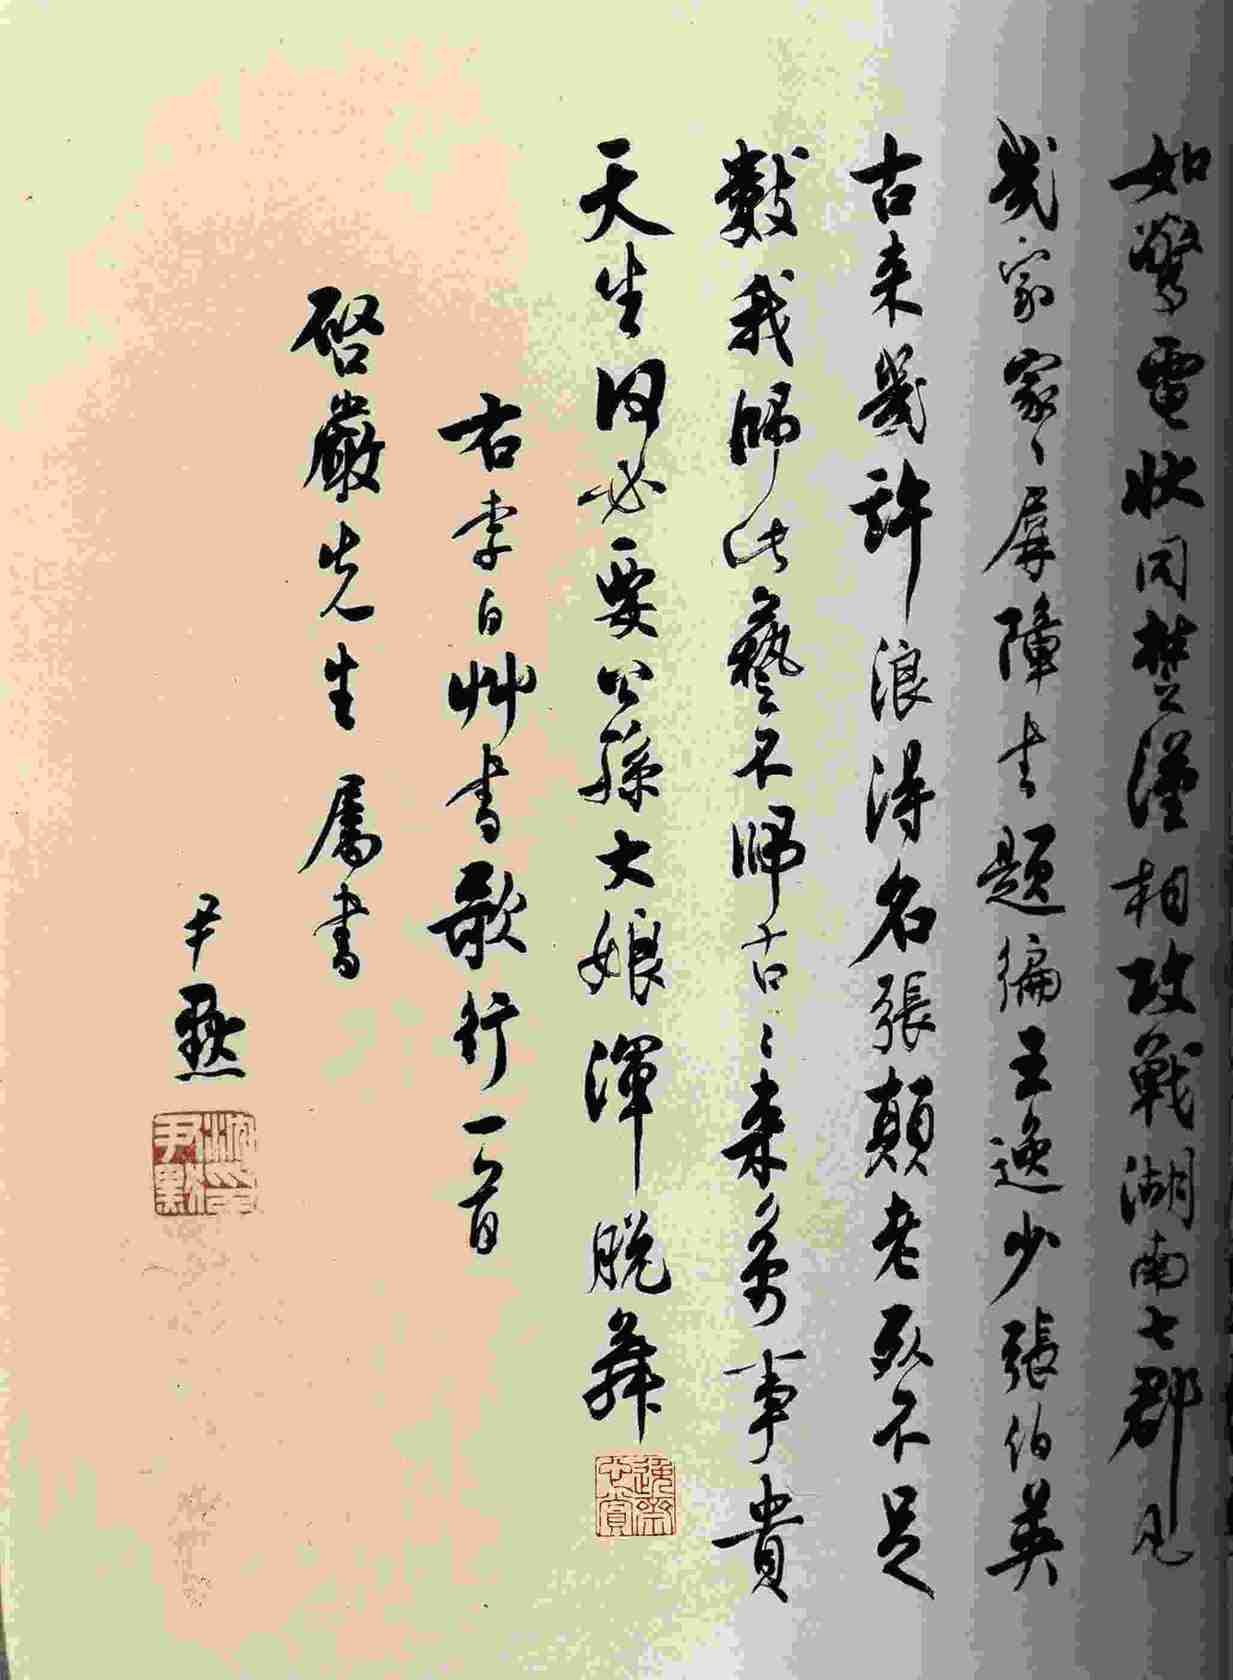 如驚電狀同楚漢相攻戰湖南七郡凡
幾家家〻屏障書題徧王逸少張伯英
古来幾許浪得名張顛老死不足
數我師此藝不師古〻来萬事貴
天生何必要公孫大娘渾脫舞
右李白艸書歌行一首
啓嚴先生屬書
尹默
沈印尹默